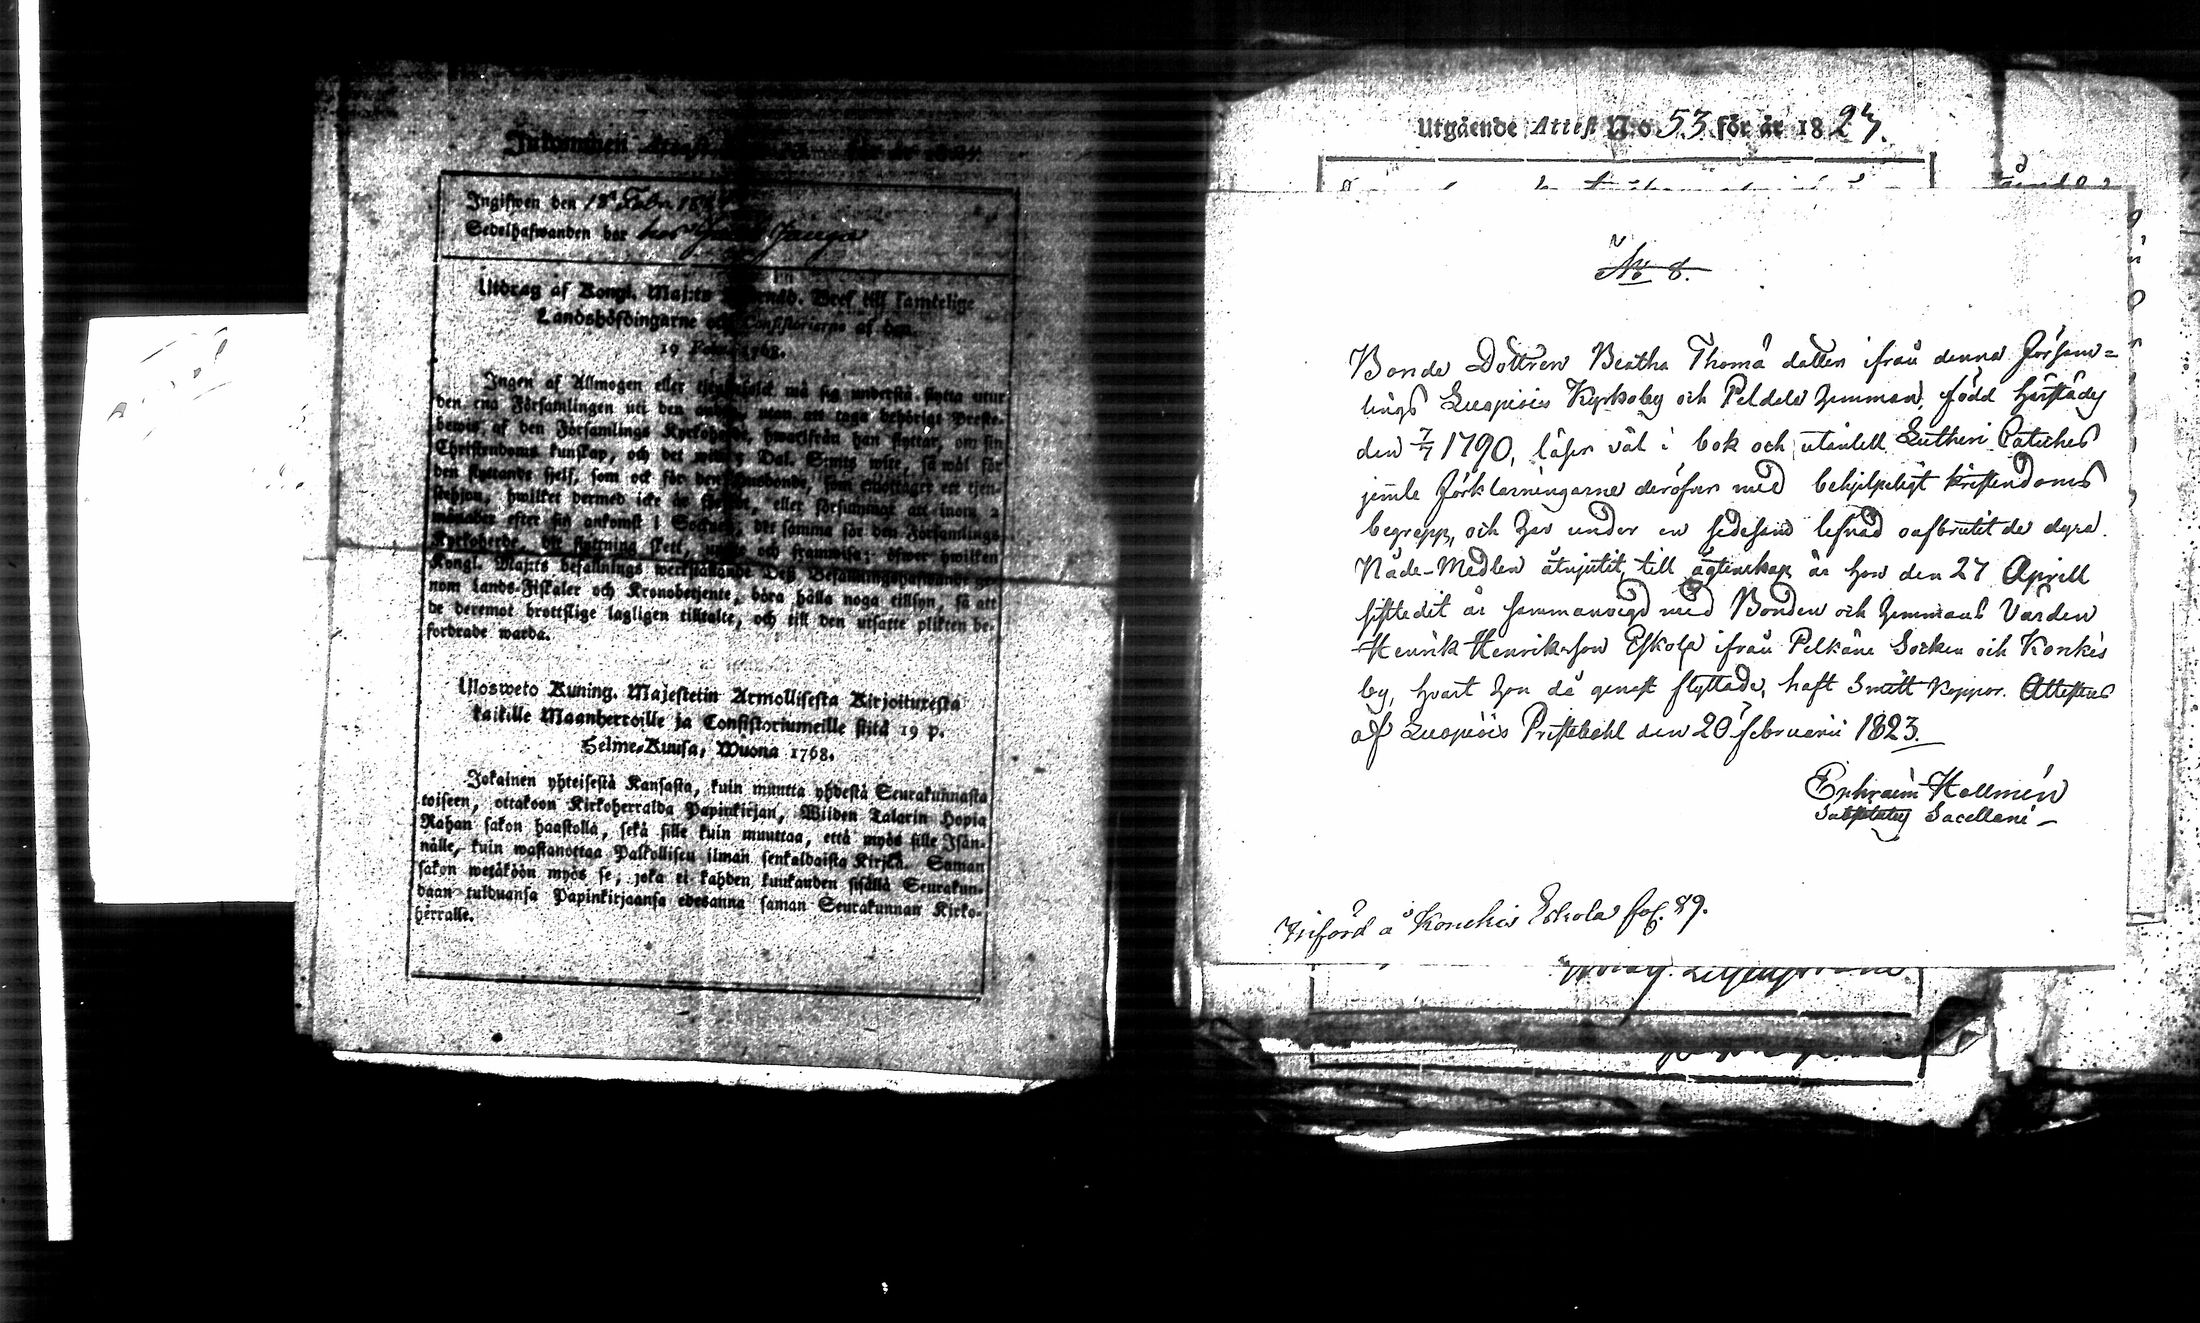 Inkommen Attest
Ingifwen den 18 Febr. 18
Sedelhafwanden bor hos
Utdrag af Kongl. Maj:ts Bref till samtelige
Landshöfdingarne och Consistorierne af den
19 Febr. 1768.
Ingen af Allmogen eller tjenstefolck må sig understå flytta utur
den ena Församlingen uti den andra, utan att taga behörigt Preste-
bewis af den Församlings Kyrkoherde, hwarifrån han flyttar, om sin
Christendoms kunskap, och det wid 5 Dal. S:mts wite, så wäl för
den flyttande sjelf, som ock för den Husbonde, som emottager ett tjen-
stehjon, hwilket dermed icke är försedt, eller försummat att inom 2
månader efter sin ankomst i Socknen, det samma för den Församlings
Kyrkoherde, dit flyttning skett, uppte och framwisa; öfwer hwilken
Kongl. Maj:ts befallnings werkställande Deß Befallningshafwande ge-
nom Lands-Fiskaler och Kronobetjente, böra hålla noga tillsyn, så att
de deremot brottslige lagligen tilltalte, och till den utsatte plikten be-
fordrade warda.
Ulosweto Kuning. Majestetin Armollisesta Kirjoituxesta
kaikille Maanherroille ja Consistoriumeille siitä 19 p.
Helme-Kuusa, Wuona 1768.
Jokainen yhteisestä Kansasta, kuin muutta yhdestä Seurakunnasta
toiseen, ottakoon Kirkoherralda Papinkirjan, Wiiden Talarin Hopia
Rahan sakon haastolla, sekä sille kuin muuttaa, että myös sille Isän-
nälle, kuin wastanottaa Palkollisen ilman senkaldaista Kirjaa. Saman
sakon wetäköön myös se, joka ei kahden kuukauden sisällä Seurakun-
daan tulduansa Papinkirjaansa edesanna saman Seurakunnan Kirko-
herralle.
Utgående Attest N:o 53 för år 1827.
No 8.
Bonde Dottren Beatha Thomä dotter ifrån denna Försam=
lings Luopiois Kyrkoby och Peldola hemman, född härstädes
den 7/7 1790, läser väl i bok och utantill Lutheri Catechес
jemte Förklarningarne deröfver med behjelpeligt kristendoms
begrepp, och har under en sedesam lefnad oafbrutit de dyra
Nåde-Medlen åtnjutit, till ägtenskap är hon den 27 Aprill
sistledit år sammanvigd med Bonden och hemmans Värden
Henrik Henriksson Eskola ifrån Pelkäne Socken och Konkis
by, hvart hon då genast flyttade, haft Smitt Koppor. Attesteras
af Luopiois Prestebohl den 20 Februarii 1823.
Ephraim Hallmén
Sacellani
Införd å Konckis Eskola fol. 89.